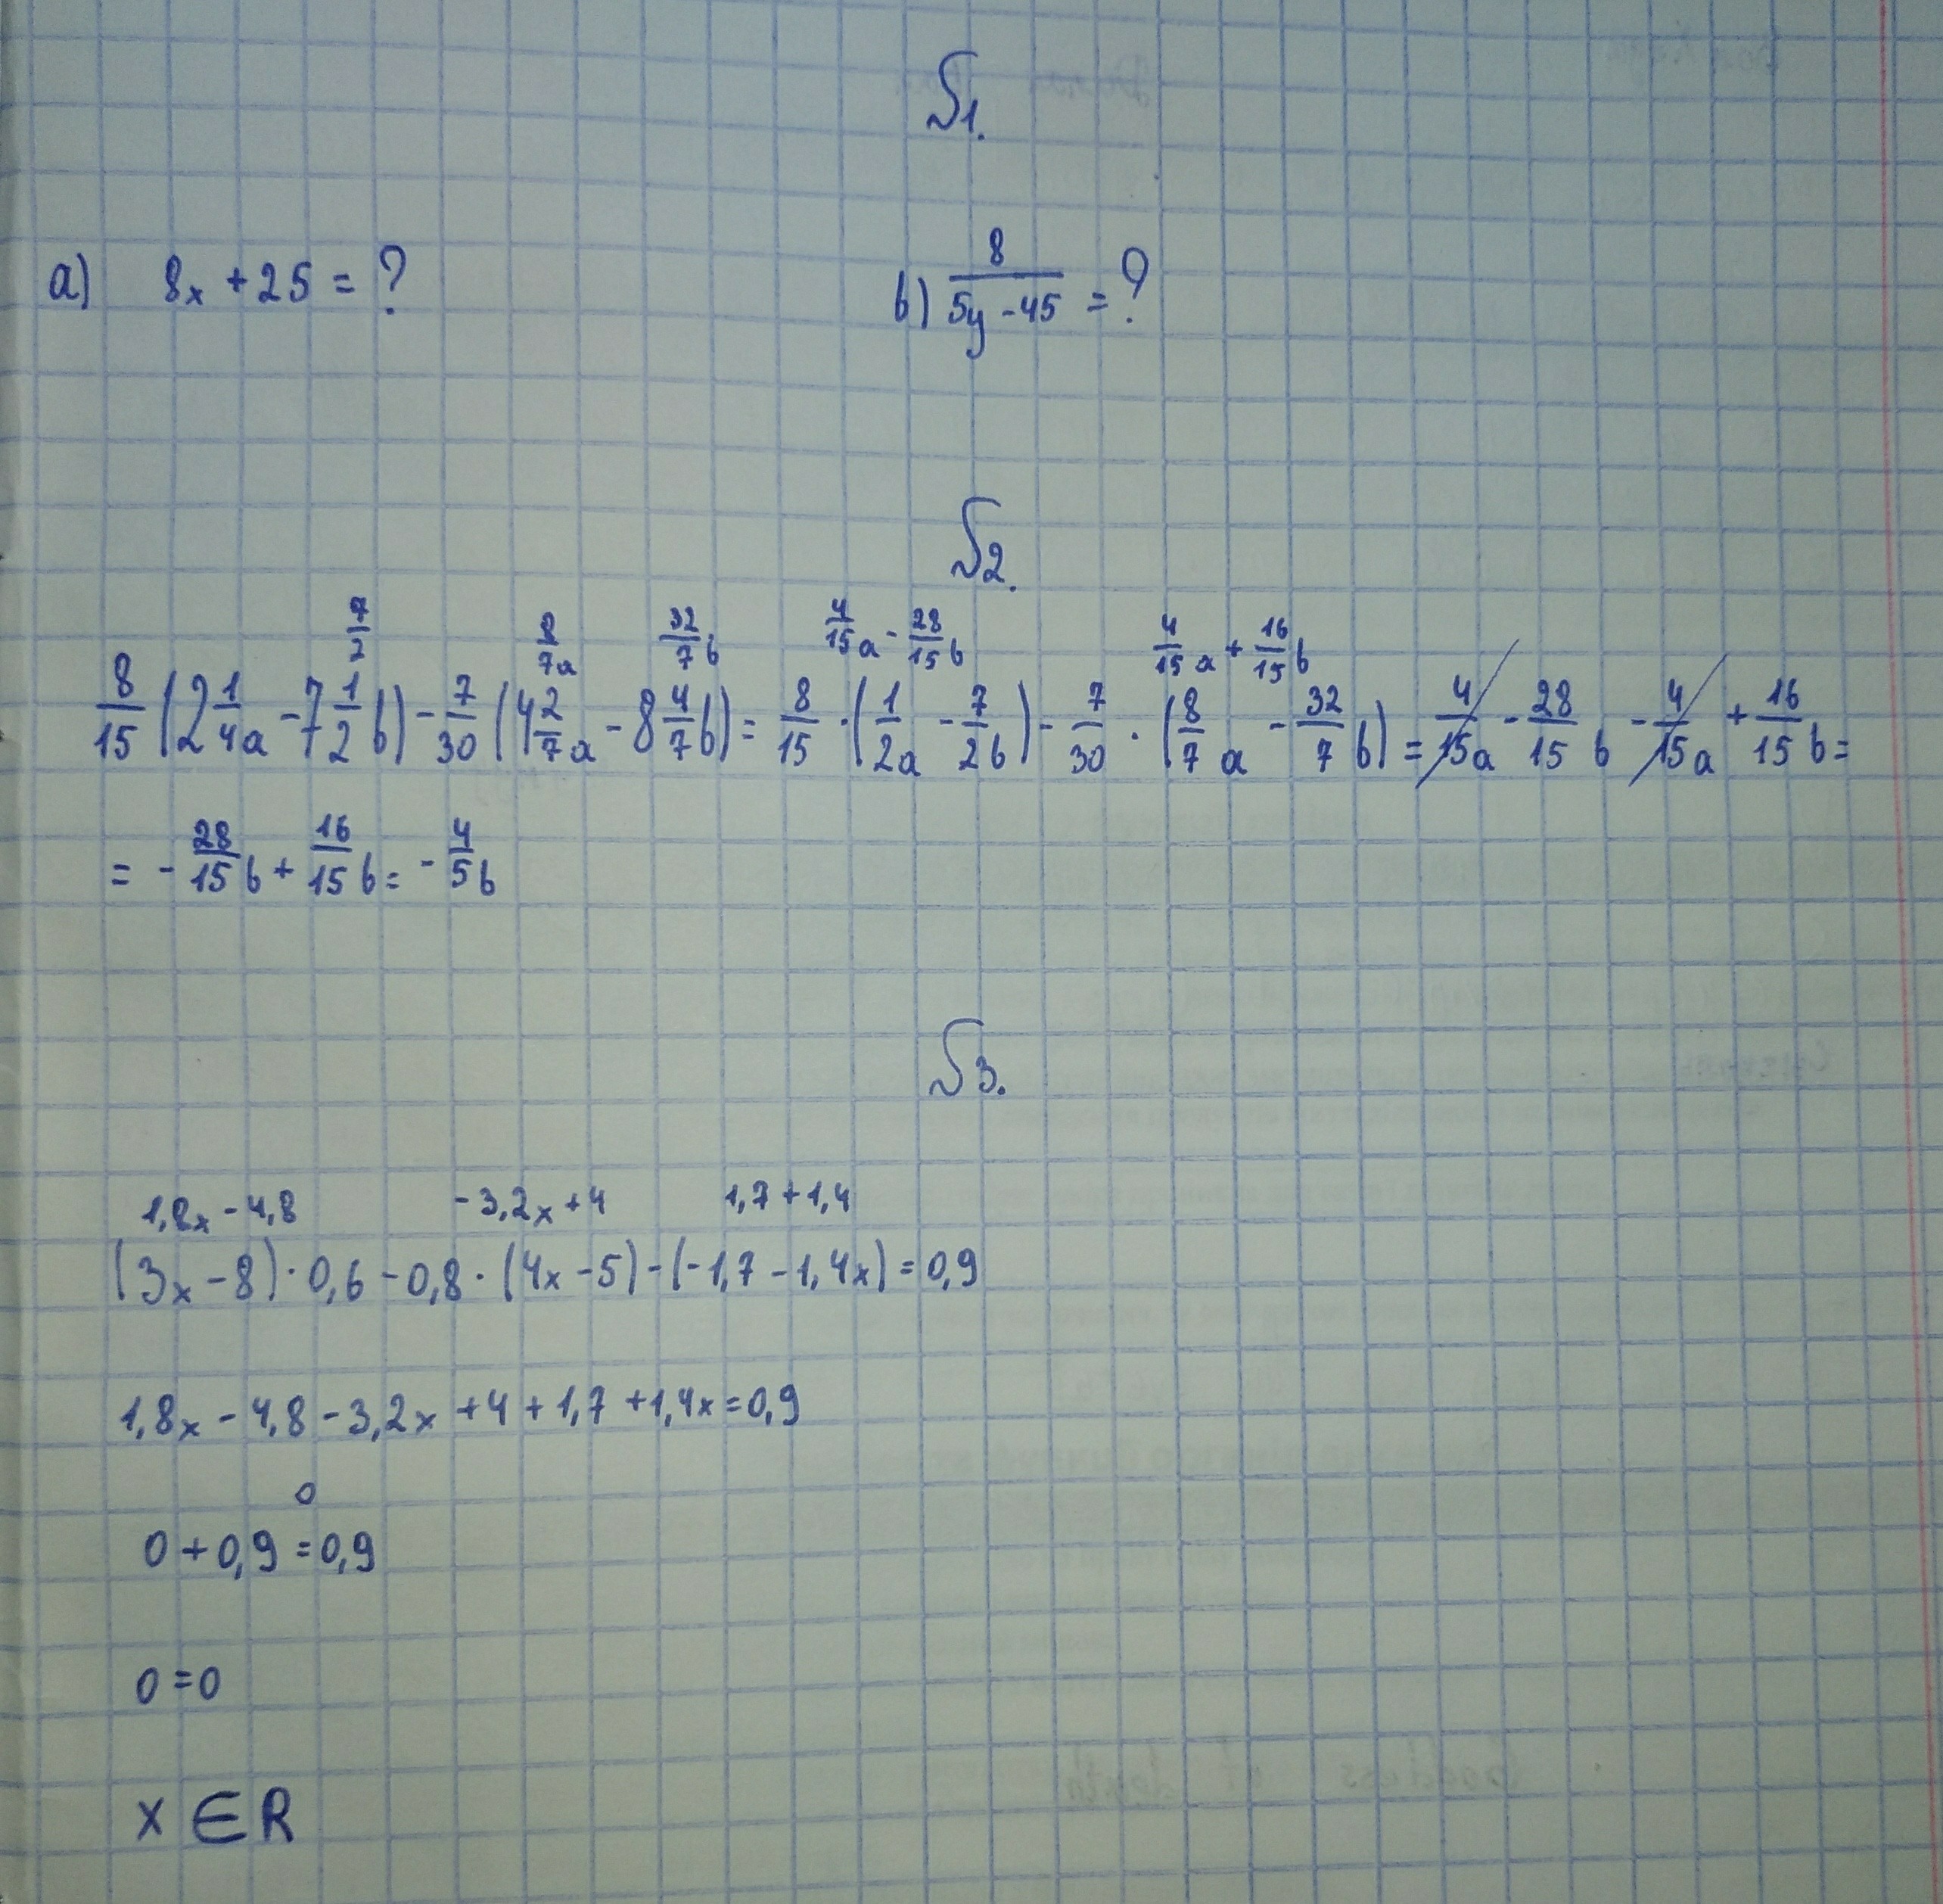 S1.
a) 8x + 25 = ?
b) 8/(5y - 45) = ?
S2.
7/2 8/7a 32/7 b 4/15 a - 28/15 b 4/15 a + 16/15 b
8/15 (2 1/4a - 7 1/2 b) - 7/30 (4 2/7 a - 8 4/7 b) = 8/15 · (1/2a - 7/2b) - 7/30 · (8/7 a - 32/7 b) = 4/15a - 28/15 b - 4/15a + 16/15 b =
= - 28/15 b + 16/15 b = - 4/5 b
S3.
1,8x - 4,8 -3,2x + 4 1,7 + 1,4
(3x - 8) · 0,6 - 0,8 · (4x - 5) - (-1,7 - 1,4x) = 0,9
1,8x - 4,8 - 3,2x + 4 + 1,7 + 1,4x = 0,9
0
0 + 0,9 = 0,9
0 = 0
x ∈ R